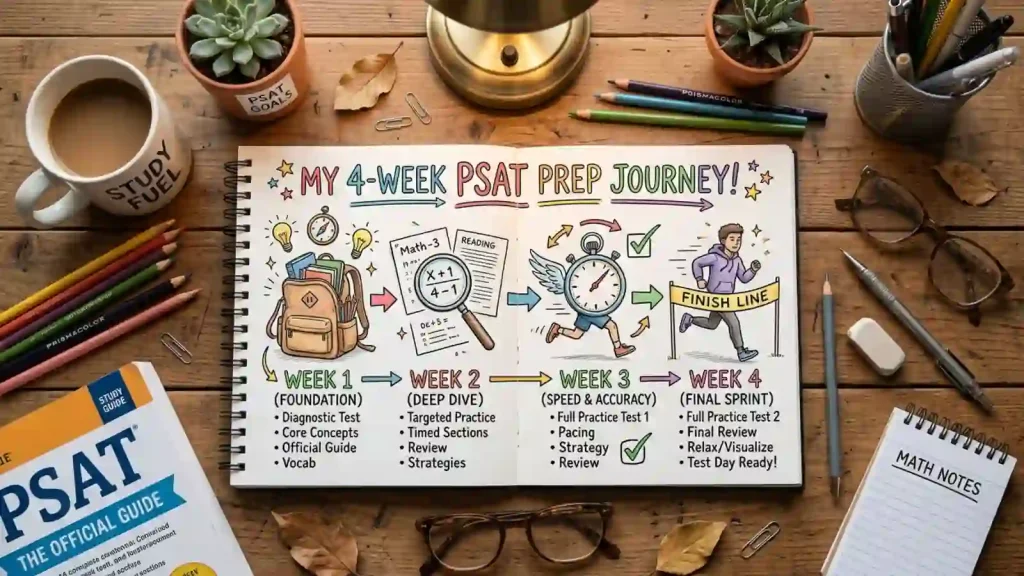 PSAT
GOALS
STUDY
FUEL
PRISMACOLOR
MY 4-WEEK PSAT PREP JOURNEY!
Math-3
READING
X+1
4-1
FINISH LINE
WEEK 1
(FOUNDATION)
• Diagnostic Test
• Core Concepts
• Official Guide
• Vocab
WEEK 2
(DEEP DIVE)
• Targeted Practice
• Timed Sections
• Review
• Strategies
WEEK 3
(SPEED & ACCURACY)
• Full Practice Test 1
• Pacing
• Strategy
• Review
WEEK 4
(FINAL SPRINT)
• Full Practice Test 2
• Final Review
• Relax/Visualize
• Test Day Ready!
PRISMACOLOR
STUDY
GUIDE
PSAT
THE OFFICIAL GUIDE
MATH NOTES